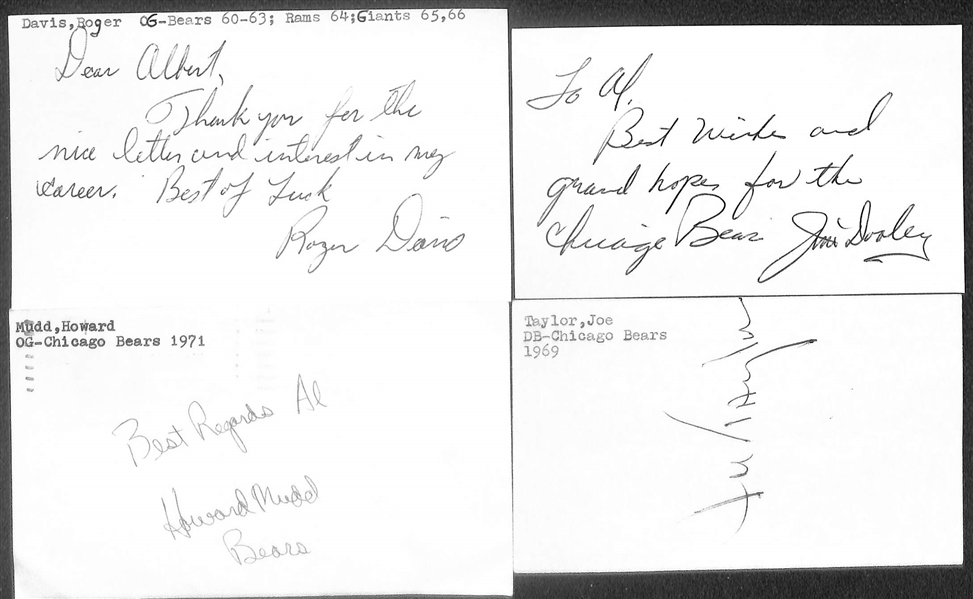 Davis,Roger OG-Bears 60-63; Rams 64;Giants 65,66
Dear Albert,
Thank you for the
nice letter and interest in my
career. Best of Luck
Roger Davis
To Al,
Best Wishes and
grand hopes for the
Chicago Bears Jim Dooley
Mudd,Howard
OG-Chicago Bears 1971
Best Regards Al
Howard Mudd
Bears
Taylor,Joe
DB-Chicago Bears
1969
Joe Taylor